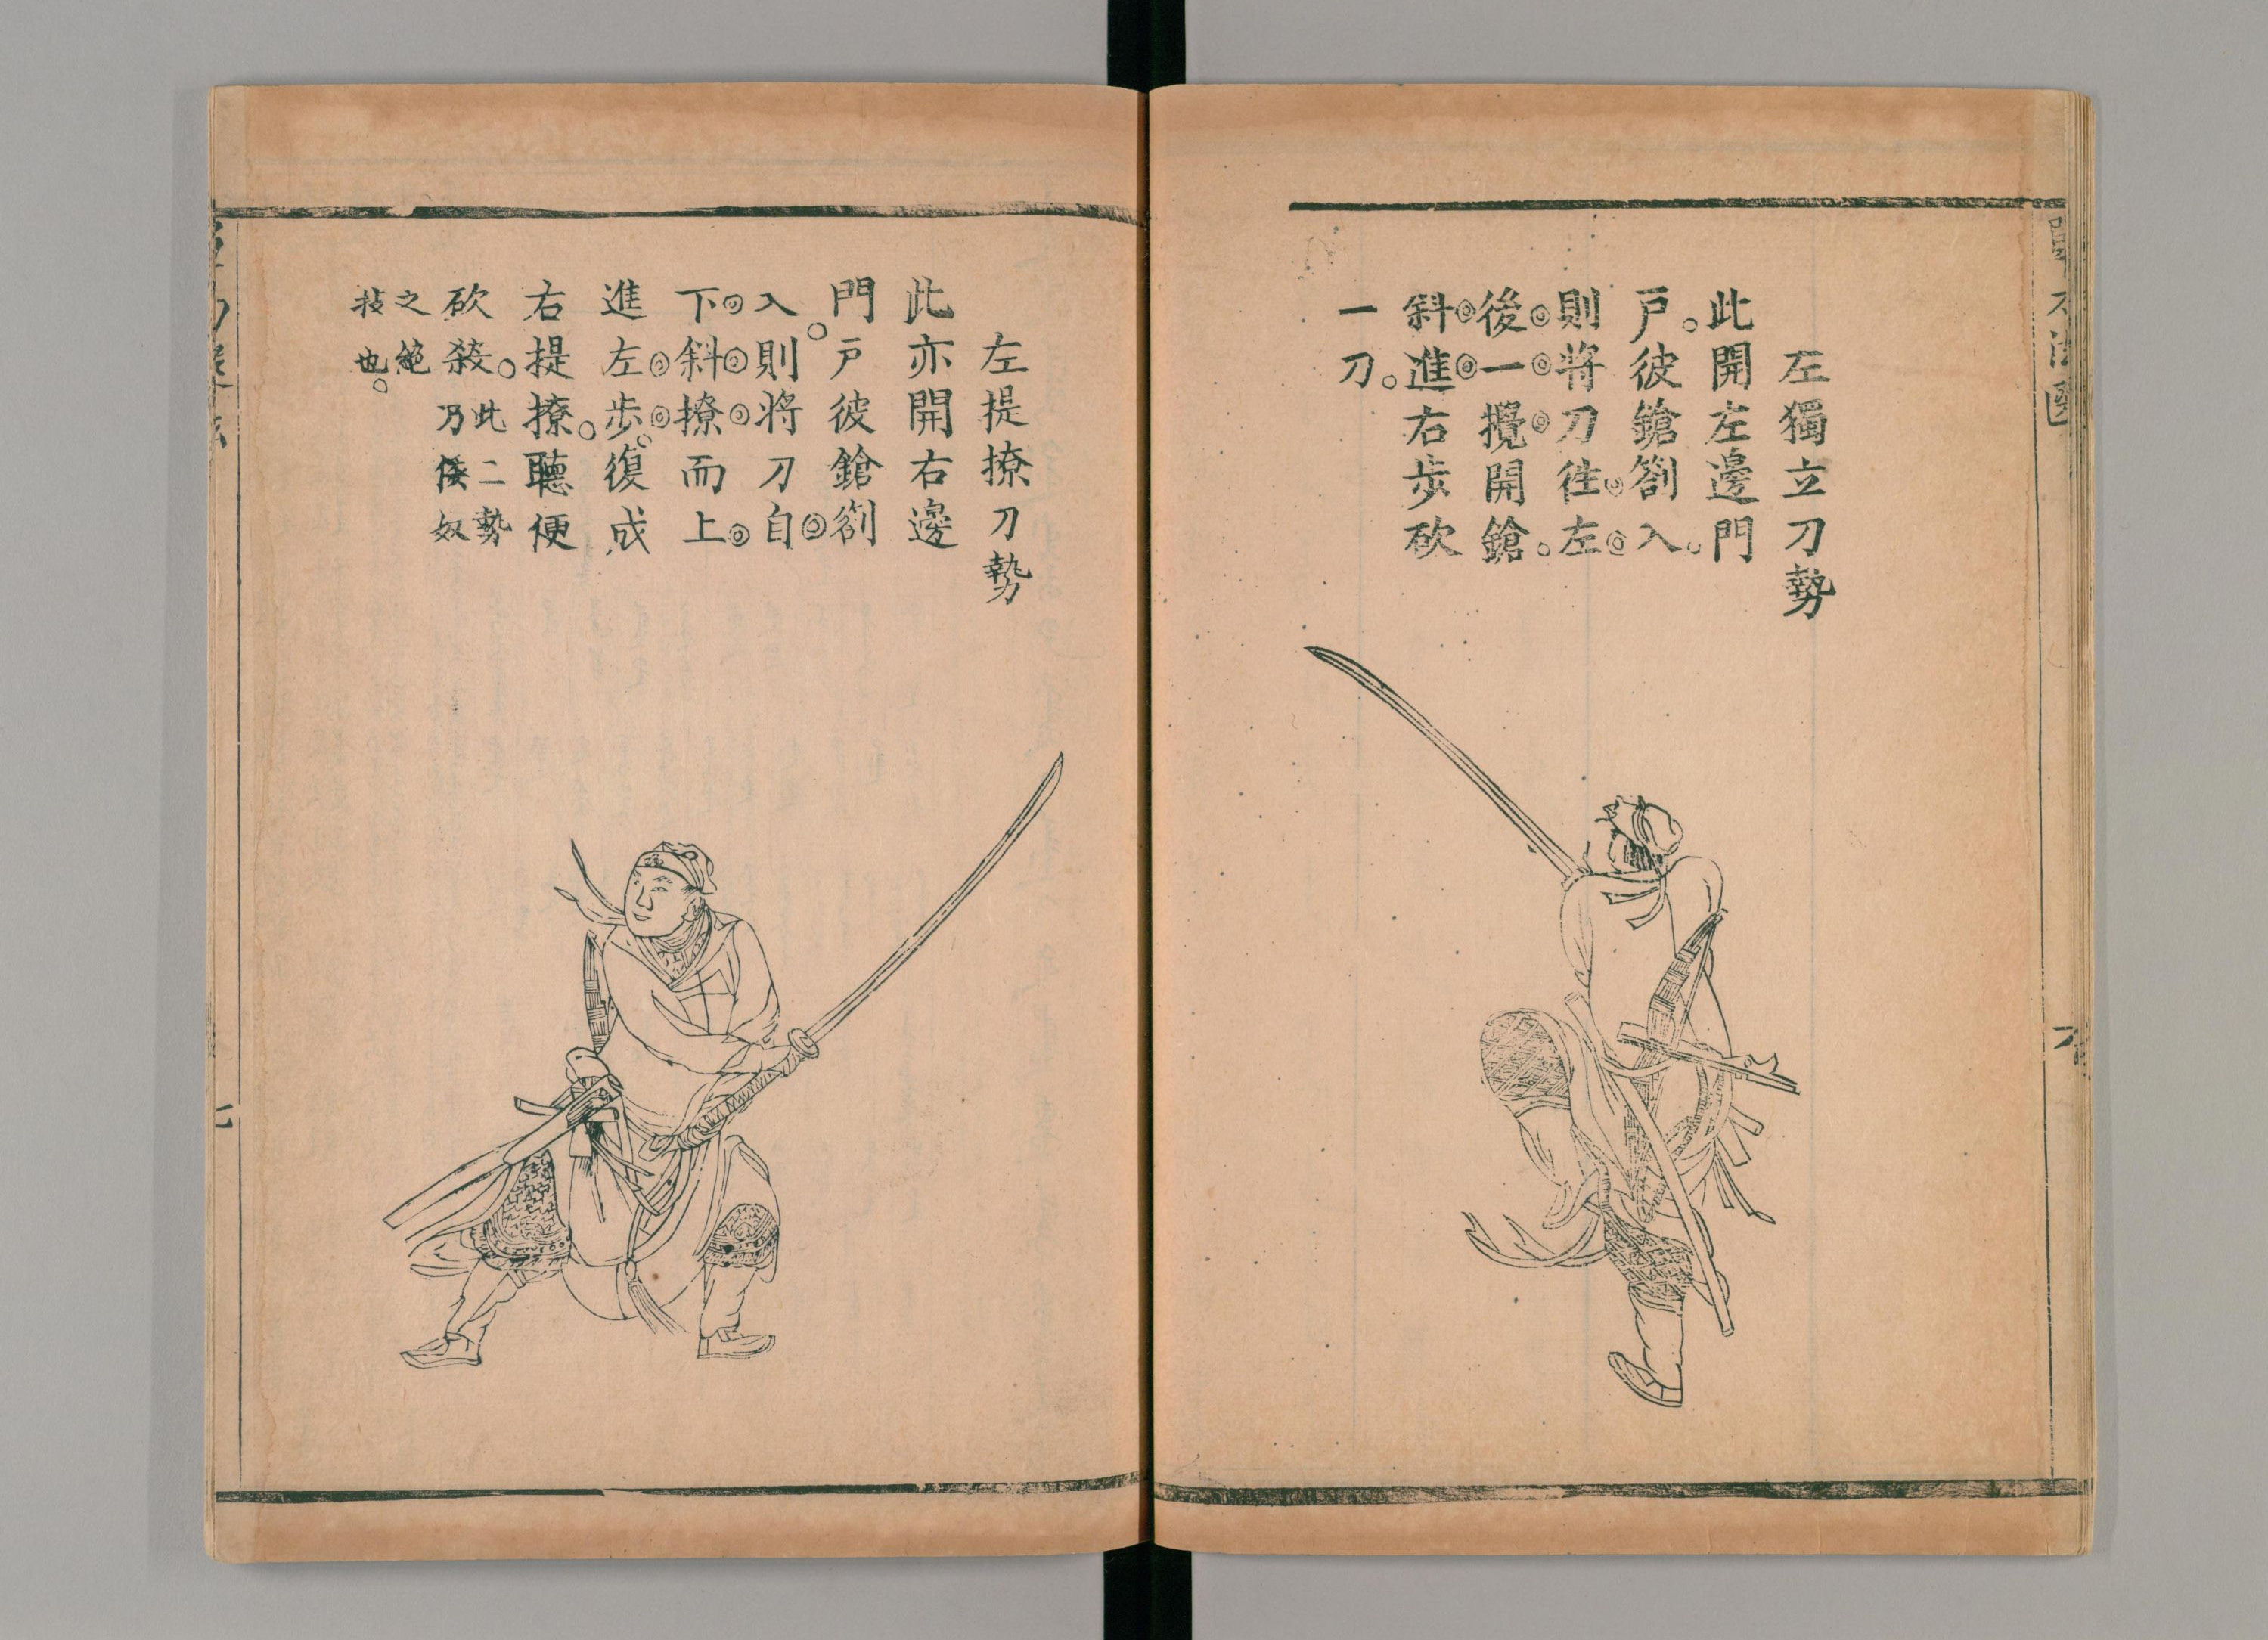 左獨立刀勢
此開左邊門
戸。彼鎗劄入。
則將刀往左
後一攪開鎗。
斜進右步砍
一刀。
左提撩刀勢
此亦開右邊
門戸彼鎗劄
入。則將刀自
下斜撩而上
進左步。復成
右提撩。聽便
砍殺。此二勢
乃倭奴
之絶
技也。